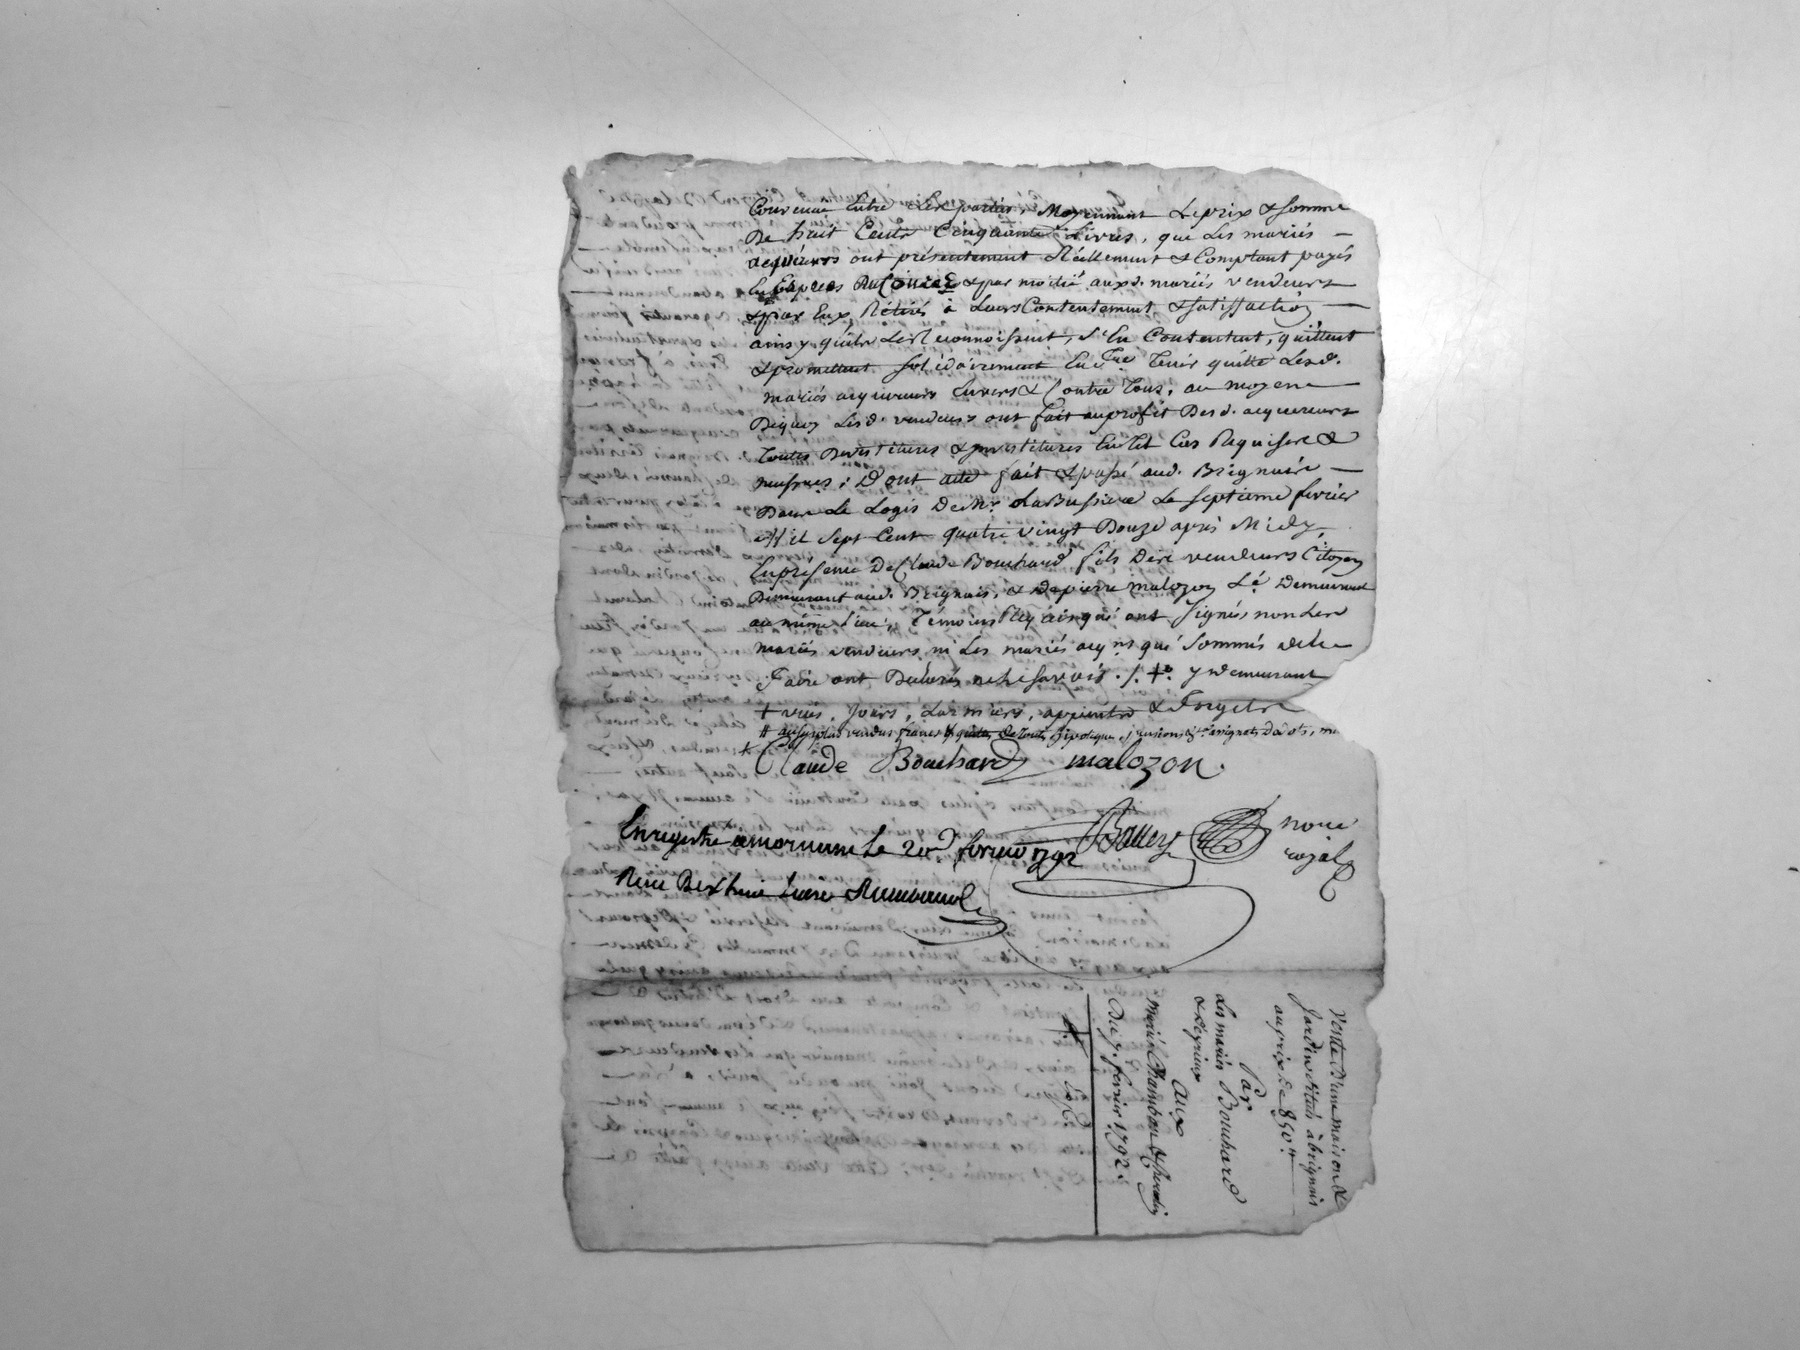 Convenue Entre Les parties, Moyennant Le prix & somme
De huit Cents Cinquante Livres, que Les mariés
acquéreurs ont présentement Réellement & Comptant payés
En Espèces & par moitié auxd. mariés vendeurs
& par Eux Rétirés à Leurs Contentement & satisfaction
ainsy qu'ils Les Reconnoissent, s'En Contentent, quittent
& promettent solidairement faire Tenir quitte Lesd.
mariés acquereurs Envers & Contre Tous, au moyen
Dequoy Lesd. vendeurs ont fait au profit Desd. acquereurs
Toutes Devestitures & investitures En Tel Cas Requises &
Dont acte fait & passé aud. Brignais
Dans Le Logis De Mr. LaBussiere Le septieme fevrier
Mil Sept Cent quatre vingt Douze après Midy,
En présence De Claude Bouchard fils Des vendeurs Citoyen
Demeurant aud. Brignais, & De pierre malozon Demeurant
au même Lieu, Témoins Requis qui ont signés non Les
mariés vendeurs ni Les mariés acqrs. qui Sommés de Le
Faire ont Déclarés ne Le savoir ./. y Demeurant
+ vues, Jours, Larmiers,
# aussy vendus francs & quittes De Toutes hipotèque, pensions
Claude Bouchard malozon.
Enregistré a mornant le 20e. fevrier 1792
Reçu Dix huit livres
nore
royal
Vente D'une maison &
Jardin scitués à brignais
au prix De 850 ₶
Par
Les mariés Bouchard
& Reyrieux
aux
mariés Chambon &
Du 7. fevrier 1792.